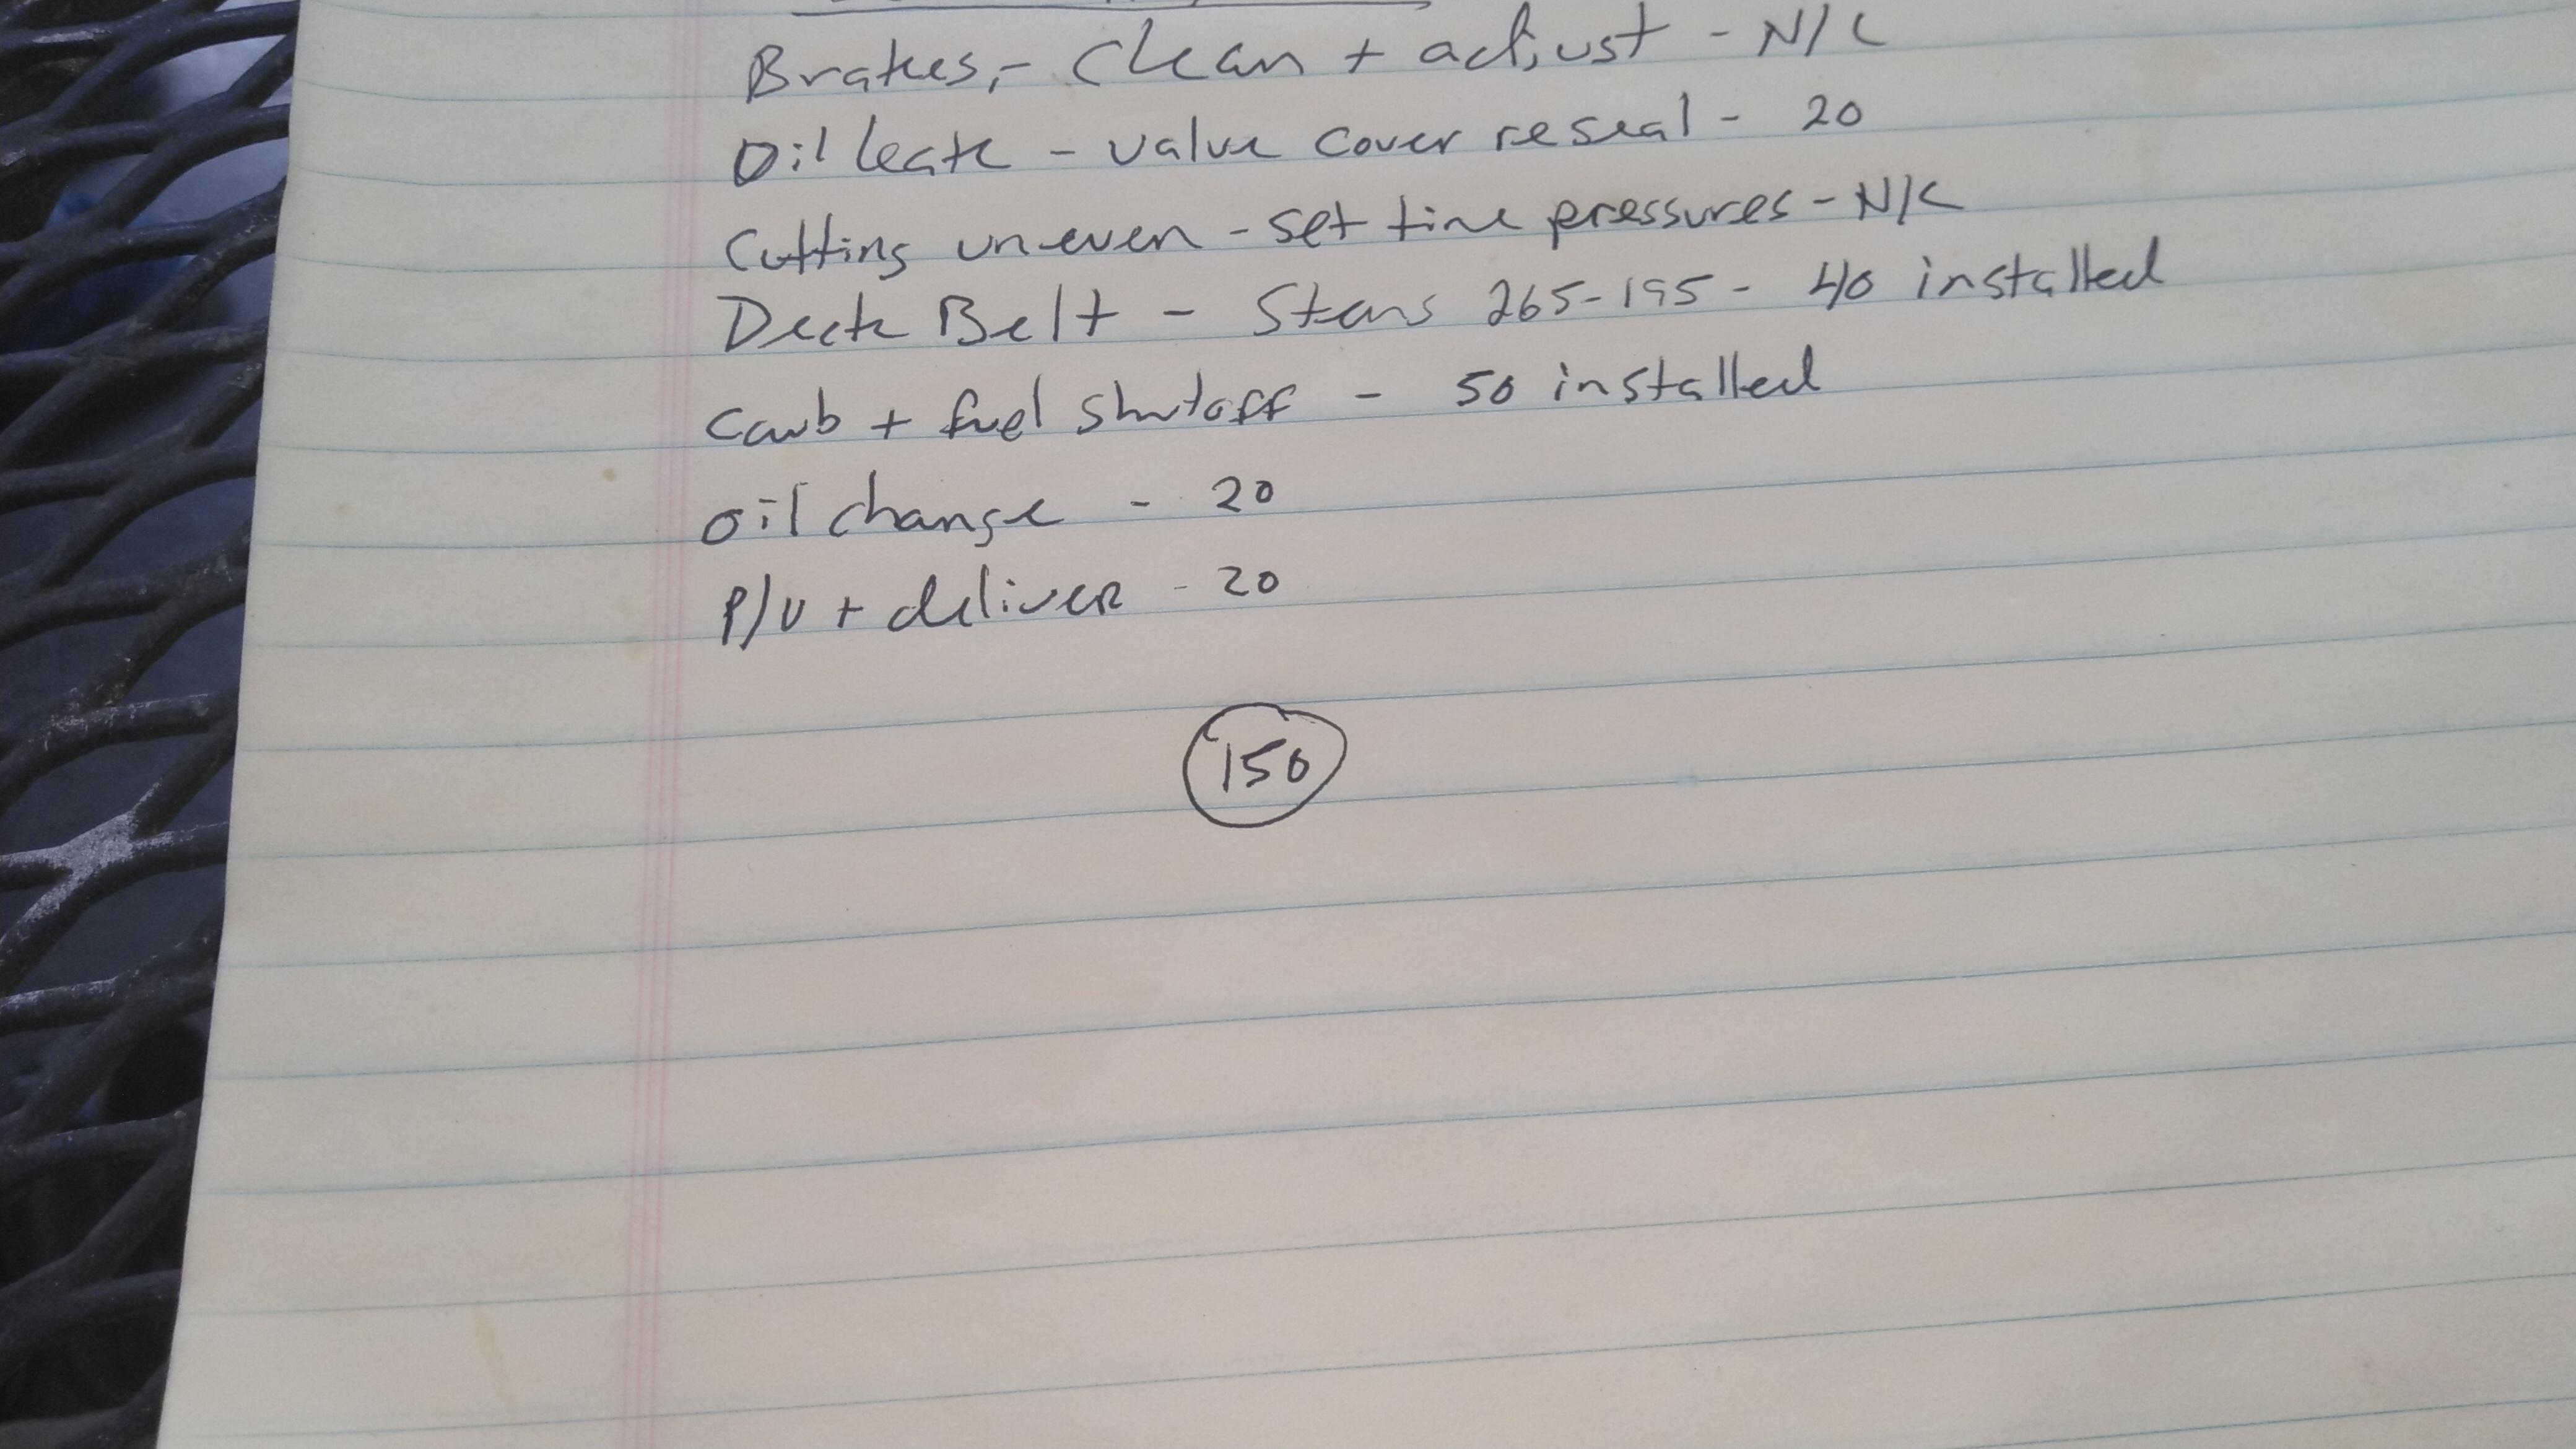 Brakes,- Clean + adjust - N/C
Oil leak - valve cover reseal - 20
Cutting uneven - set tire pressures - N/C
Deck Belt - Stens 265-195 - 40 installed
Carb + fuel shutoff - 50 installed
oil change - 20
P/U + deliver - 20
150